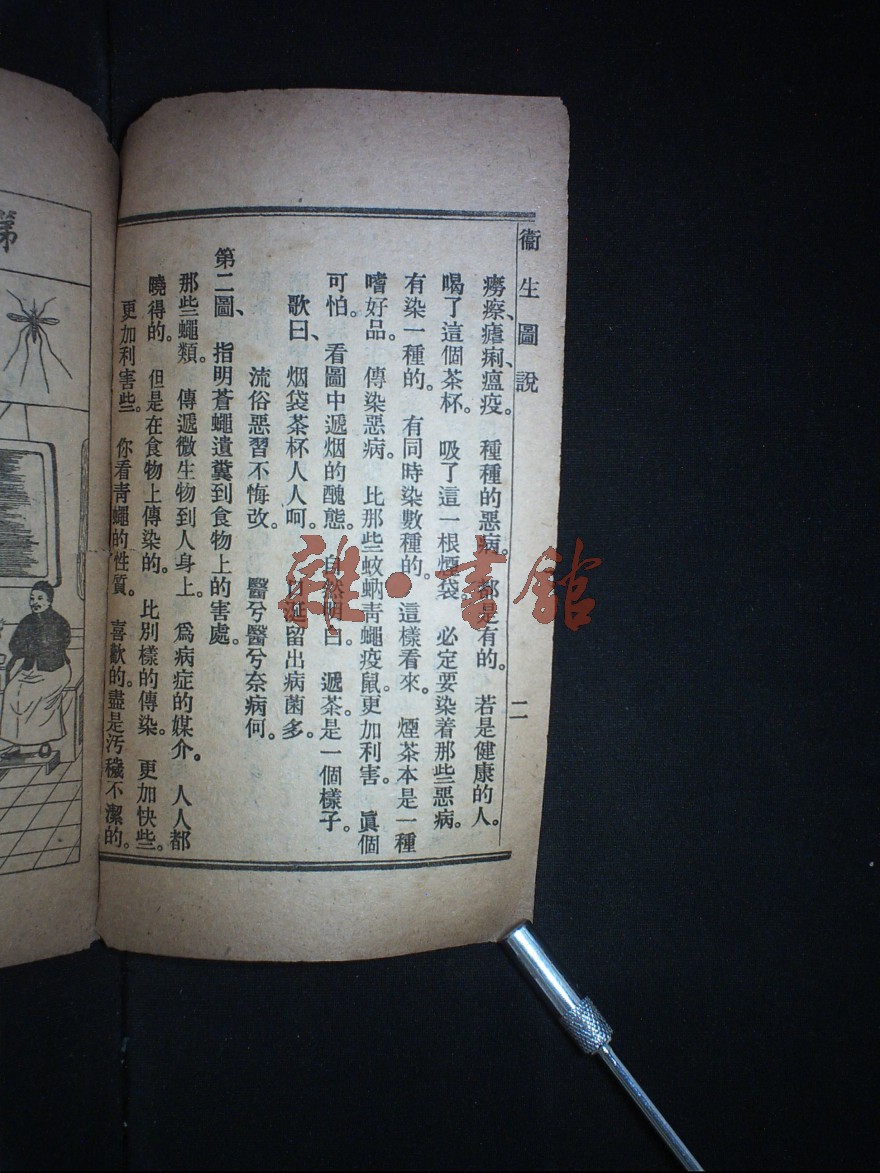 衞生圖說
二
癆瘵、瘧痢、瘟疫。種種的惡病。都是有的。若是健康的人。
喝了這個茶杯。吸了這一根煙袋。必定要染着那些惡病。
有染一種的。有同時染數種的。這樣看來。煙茶本是一種
嗜好品。傳染惡病。比那些蚊蚋靑蠅疫鼠更加利害。眞個
可怕。看圖中遞烟的醜態。自然明白。遞茶是一個樣子。
歌曰、烟袋茶杯人人呵。口涎留出病菌多。
流俗惡習不悔改。醫兮醫兮奈病何。
第二圖、指明蒼蠅遺糞到食物上的害處。
那些蠅類。傳遞微生物到人身上。爲病症的媒介。人人都
曉得的。但是在食物上傳染的。比別樣的傳染。更加快些。
更加利害些。你看靑蠅的性質。喜歡的盡是汚穢不潔的。
第
雜·書館